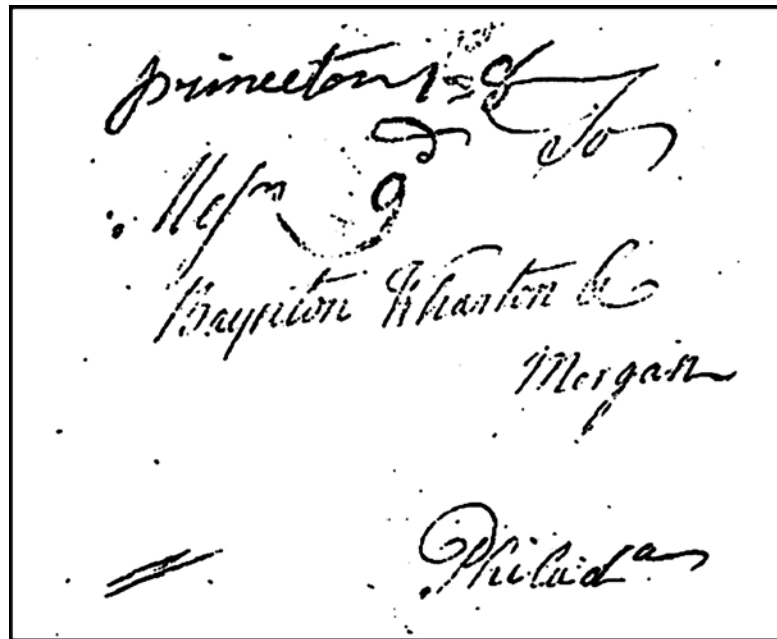 princeton 1=8
To
Messrs
Baynton Wharton &
Morgan
Philada